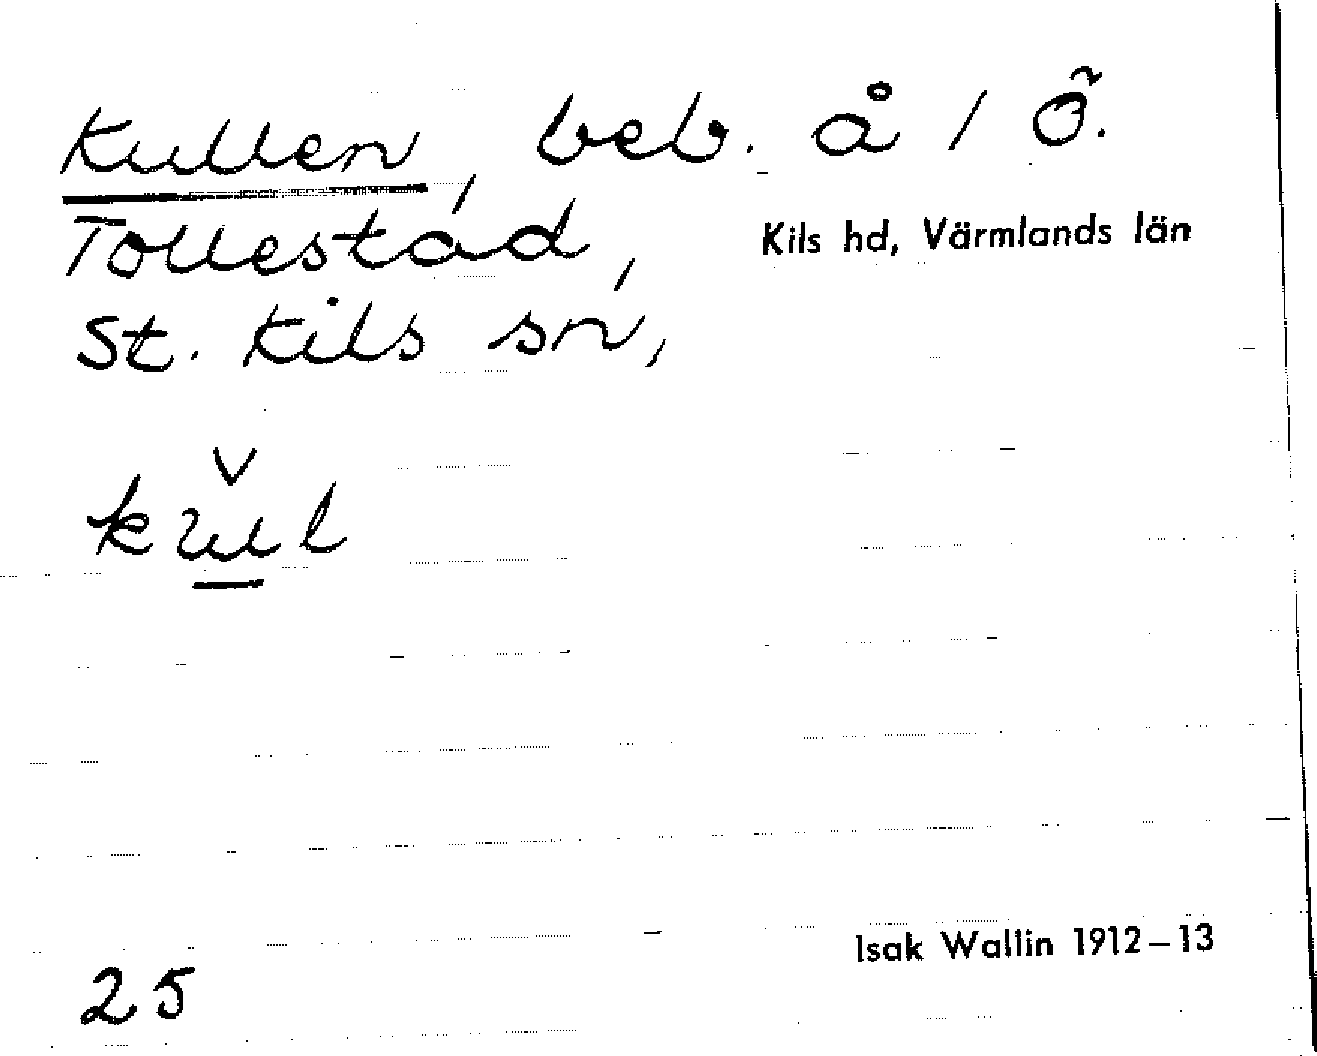 Kullen, beb. å 1 Ö.
Tollestad,
Kils hd, Värmlands län
St. Kils sn,
25
Isak Wallin 1912–13